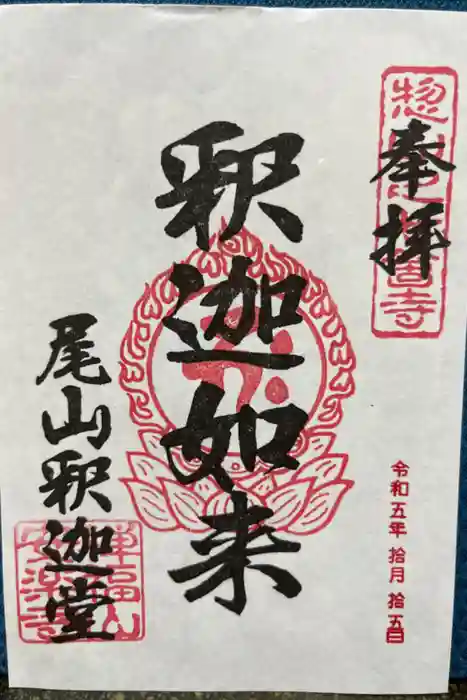 奉拝
釈迦如来
令和五年 拾月 拾五日
尾山釈迦堂